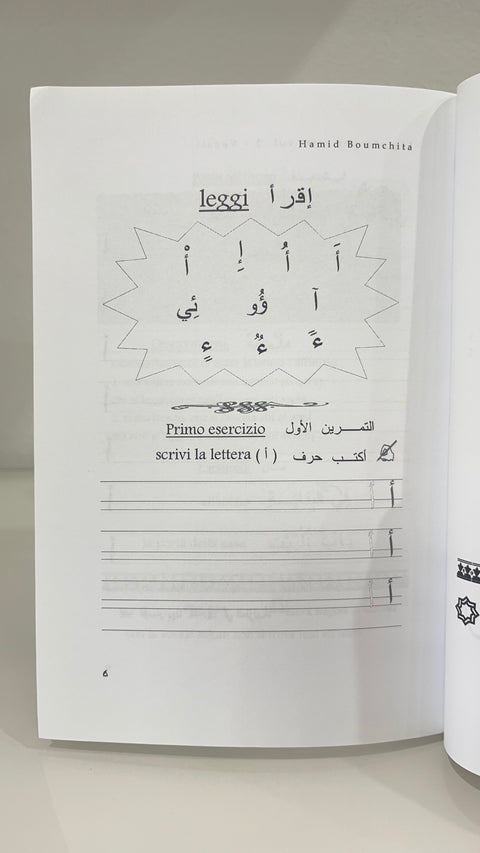 Hamid Boumchita
leggi إقرأ
أَ أُ إِ أْ
آ ؤُو ئِي
ءً ءٌ ءٍ
Primo esercizio التمـــرين الأول
scrivi la lettera ( أ ) أكتـب حرف
أ أ
أ أ
أ أ